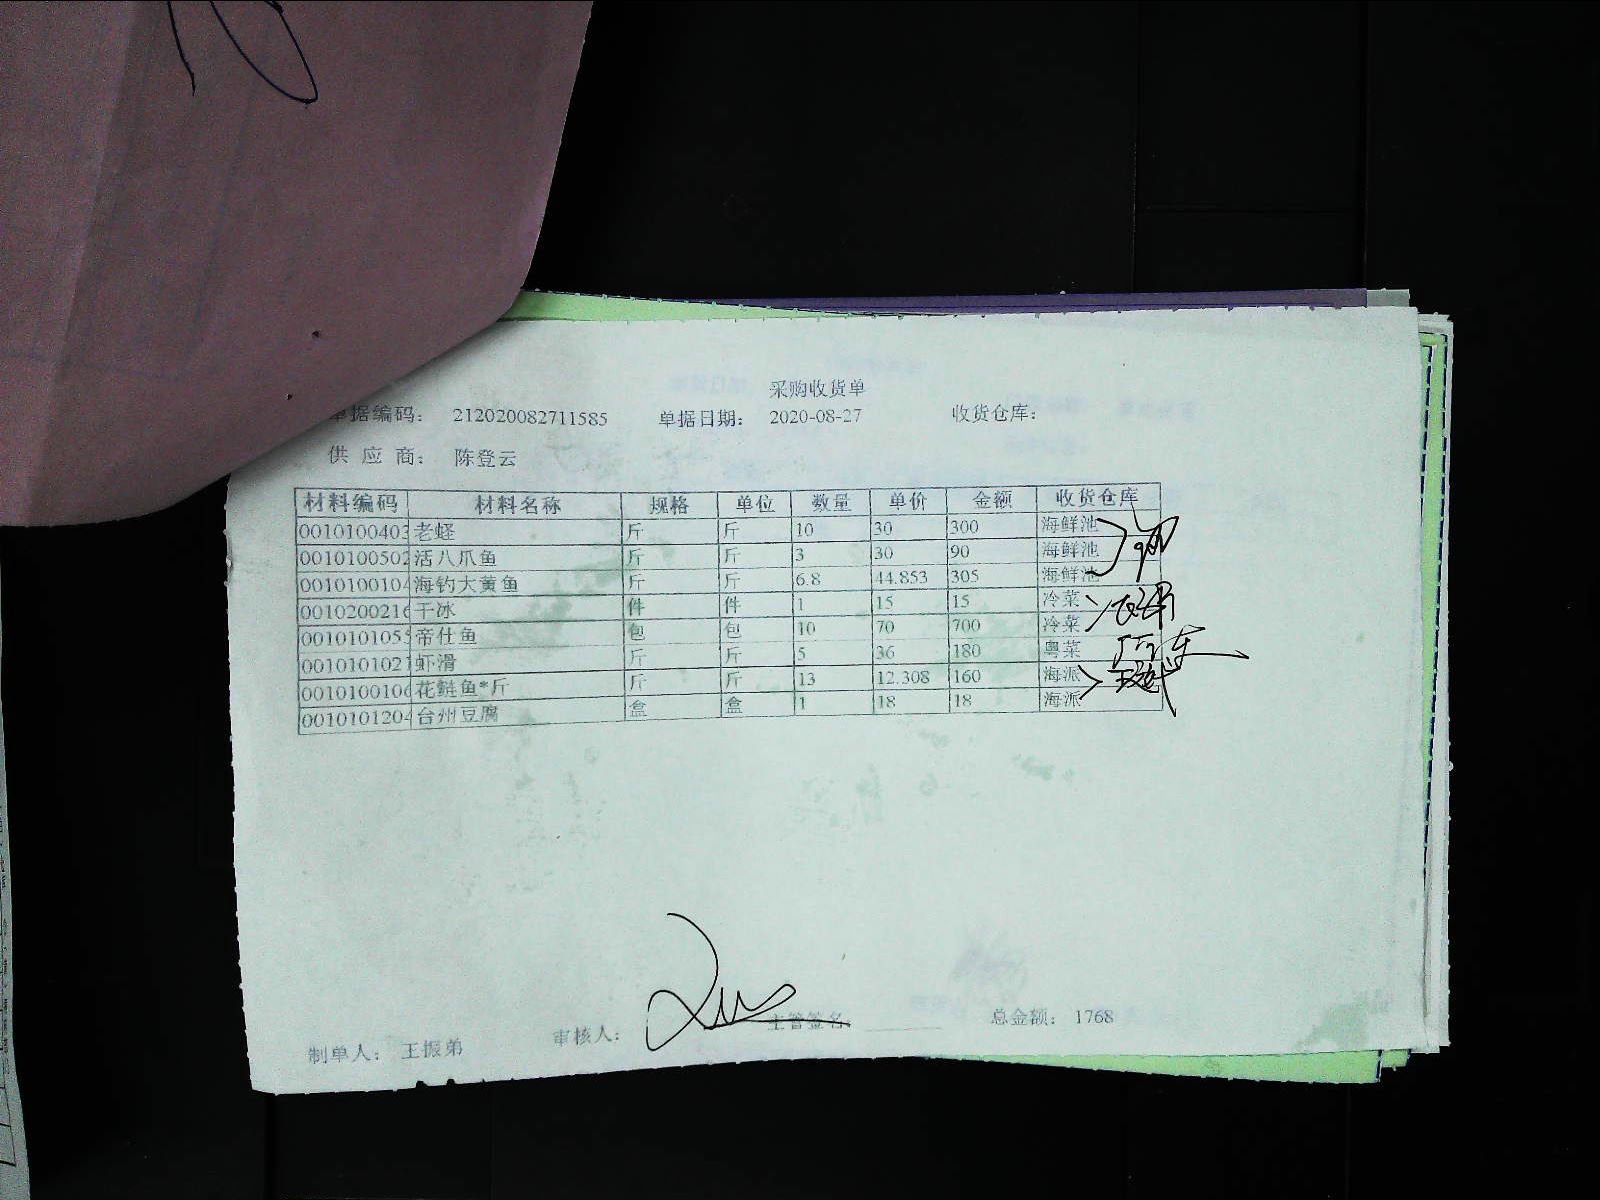 采购收货单
单据编码： 212020082711585 单据日期： 2020-08-27 收货仓库：
供 应 商： 陈登云
材料编码 材料名称 规格 单位 数量 单价 金额 收货仓库
0010100403 老蛏 斤 斤 10 30 300 海鲜池
0010100502 活八爪鱼 斤 斤 3 30 90 海鲜池
0010100104 海钓大黄鱼 斤 斤 6.8 44.853 305 海鲜池
0010200216 干冰 件 件 1 15 15 冷菜
0010101055 帝仕鱼 包 包 10 70 700 冷菜
001010102 虾滑 斤 斤 5 36 180 粤菜
0010100106 花鲢鱼*斤 斤 斤 13 12.308 160 海派
0010101204 台州豆腐 盒 盒 1 18 18 海派
制单人： 王振弟 审核人： 主管签名： 总金额： 1768